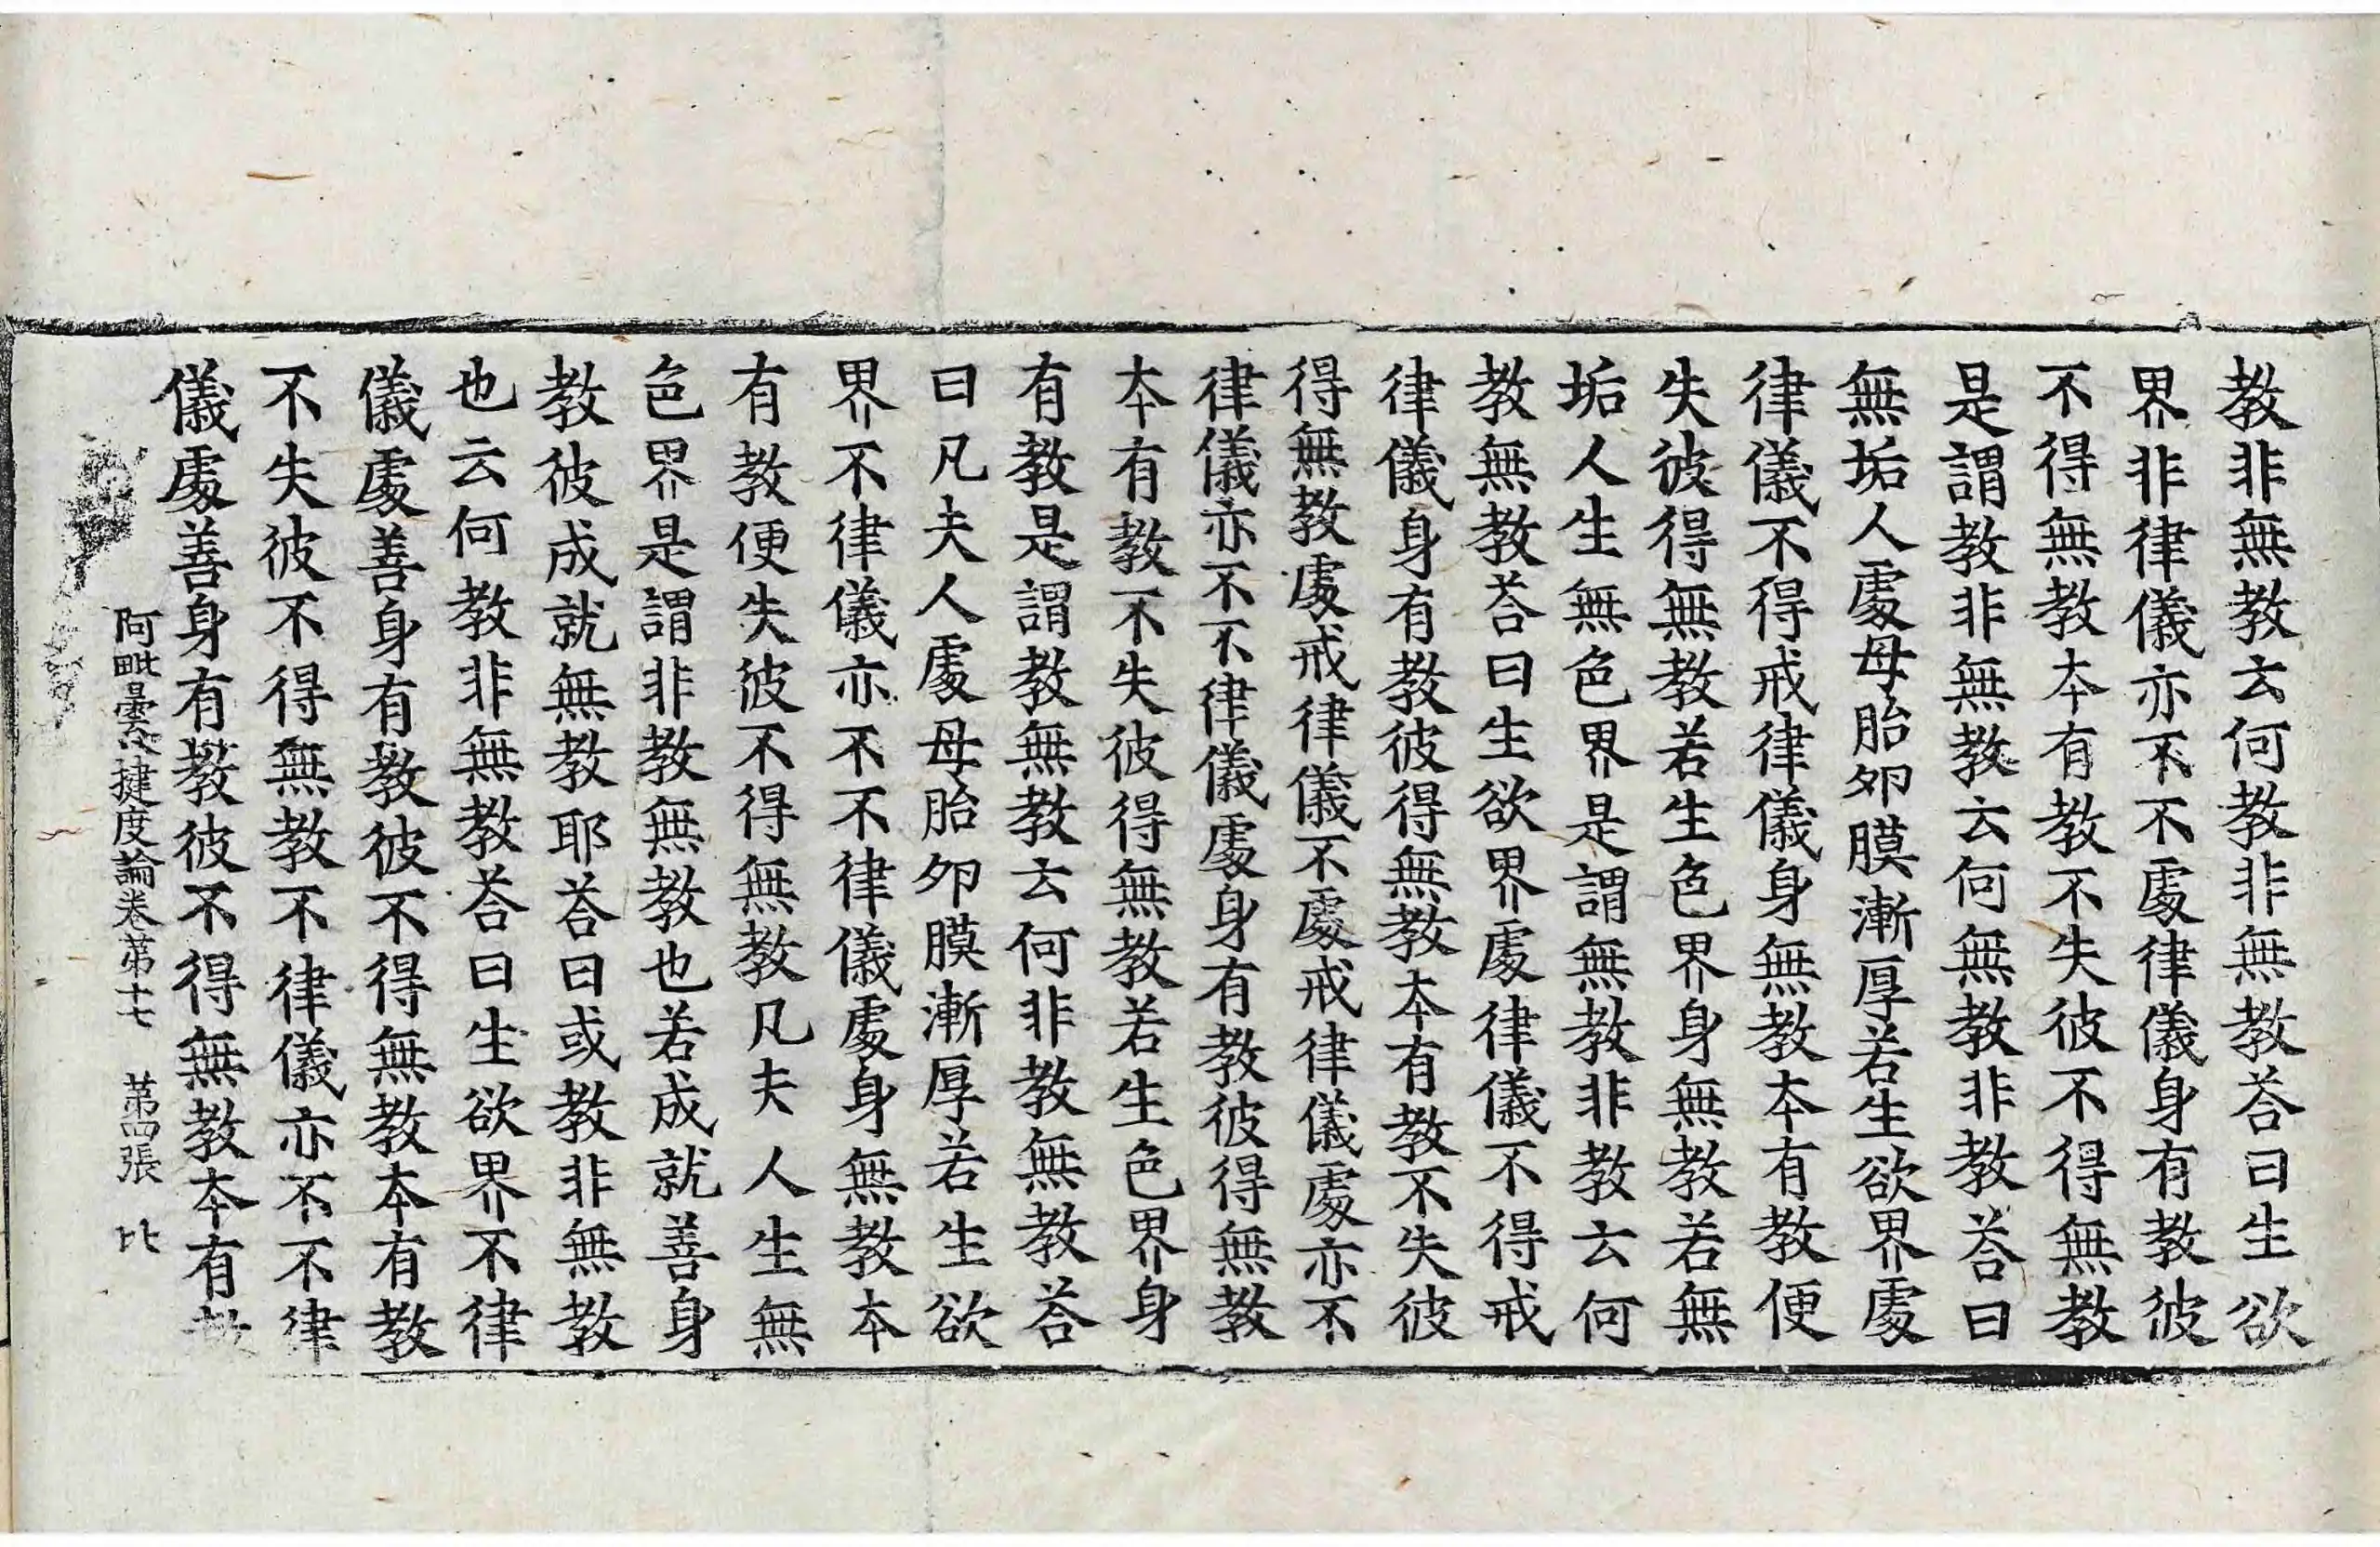 教非無教云何教非無教荅曰生欲
界非律儀亦不不處律儀身有教彼
不得無教本有教不失彼不得無教
是謂教非無教云何無教非教荅曰
無垢人處母胎夘膜漸厚若生欲界處
律儀不得戒律儀身無教本有教便
失彼得無教若生色界身無教若無
垢人生無色界是謂無教非教云何
教無教荅曰生欲界處律儀不得戒
律儀身有教彼得無教本有教不失彼
得無教處戒律儀不處戒律儀處亦不
律儀亦不不律儀處身有教彼得無教
本有教不失彼得無教若生色界身
有教是謂教無教云何非教無教荅
曰凡夫人處母胎夘膜漸厚若生欲
界不律儀亦不不律儀處身無教本
有教便失彼不得無教凡夫人生無
色界是謂非教無教也若成就善身
教彼成就無教耶荅曰或教非無教
也云何教非無教荅曰生欲界不律
儀處善身有教彼不得無教本有教
不失彼不得無教不律儀亦不不律
儀處善身有教彼不得無教本有教
阿毗曇八揵度論卷苐十七　苐四張　比